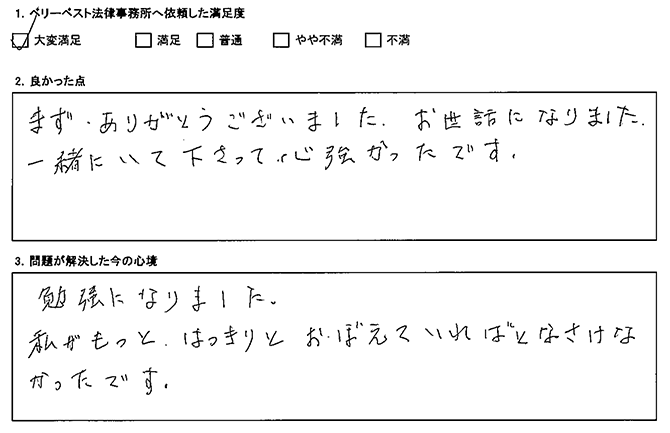 1. ベリーベスト法律事務所へ依頼した満足度
大変満足 満足 普通 やや不満 不満
2. 良かった点
まず、ありがとうございました。お世話になりました。
一緒にいて下さって、心強かったです。
3. 問題が解決した今の心境
勉強になりました。
私がもっと、はっきりとおぼえていればとなさけな
かったです。